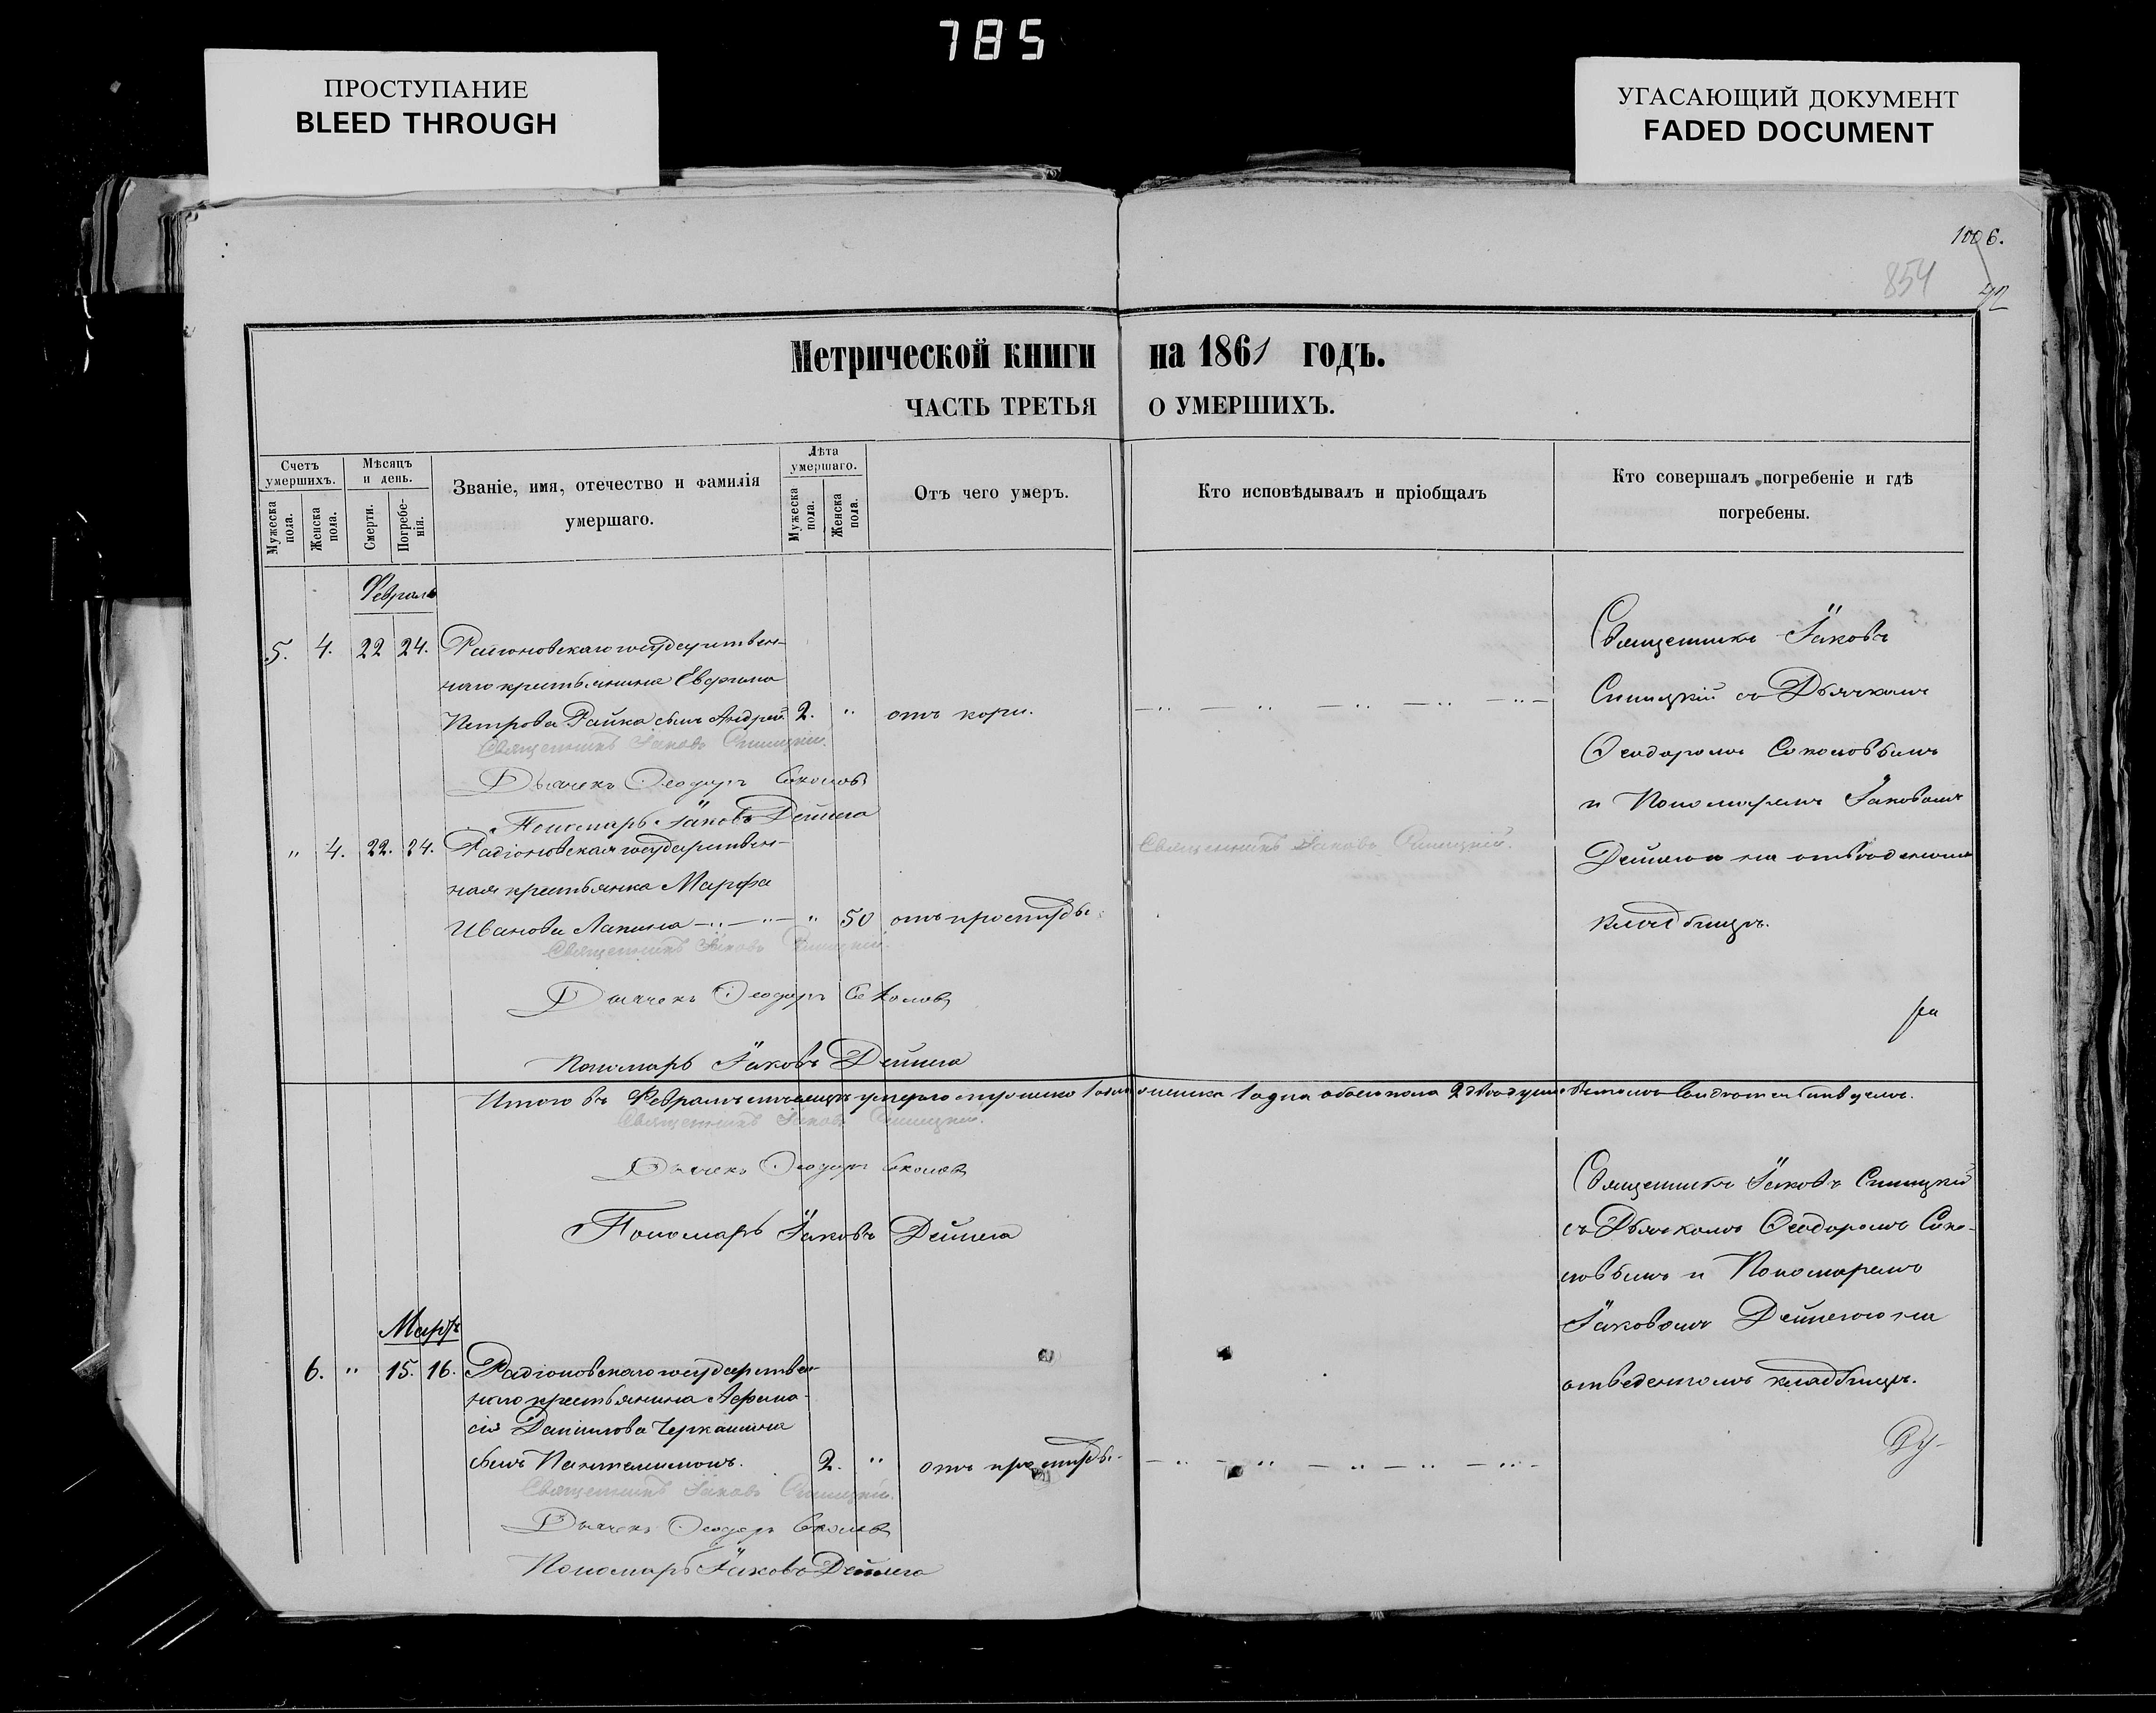 785
ПРОСТУПАНИЕ
BLEED THROUGH
УГАСАЮЩИЙ ДОКУМЕНТ
FADED DOCUMENT
1006.
854
Метрической книги на 1861 годъ.
ЧАСТЬ ТРЕТЬЯ О УМЕРШИХЪ.
Счетъ умершихъ.
Мужеска пола.
Женска пола.
Мѣсяцъ и день.
Смерти.
Погребенія.
Званіе, имя, отечество и фамилія
умершаго.
Лѣта умершаго.
Мужеска пола.
Женска пола.
Отъ чего умеръ.
Кто исповѣдывалъ и пріобщалъ
Кто совершалъ погребеніе и гдѣ
погребены.
Февраль
5. 4. 22 24. государствен-
наго крестьянина
Петрова сынъ Андрей 2. " отъ кори.
Священникъ Іаковъ
Дьячекъ Ѳеодоръ Соколовъ
Пономарь Іаковъ Дейнега
Священникъ Іаковъ
съ Дьячкомъ
Ѳеодоромъ Соколовымъ
и Пономаремъ Іаковомъ
Дейнегою на отведенномъ
кладбищѣ.
" 4. 22. 24. Радіоновская государствен-
ная крестьянка Марфа
Иванова Лапина " 50 отъ простуды
Священникъ Іаковъ
Священникъ Іаковъ
Дьячекъ Ѳеодоръ Соколовъ
Пономарь Іаковъ Дейнега
Итого въ Февралѣ мѣсяцѣ умерло мужеска 1 женска 1 одна обоего пола 2 двѣ души
Священникъ Іаковъ
Дьячекъ Ѳеодоръ Соколовъ
Пономарь Іаковъ Дейнега
Священникъ Іаковъ
съ Дьячкомъ Ѳеодоромъ Соко-
ловымъ и Пономаремъ
Іаковомъ Дейнегою на
отведенномъ кладбищѣ.
Мартъ
6. " 15. 16. Радіоновскаго государствен-
наго крестьянина Афана-
сія Данилова Черкашина
сынъ Пантелимонъ. 2. " отъ простуды
Священникъ Іаковъ
Дьячекъ Ѳеодоръ Соколовъ
Пономарь Іаковъ Дейнега